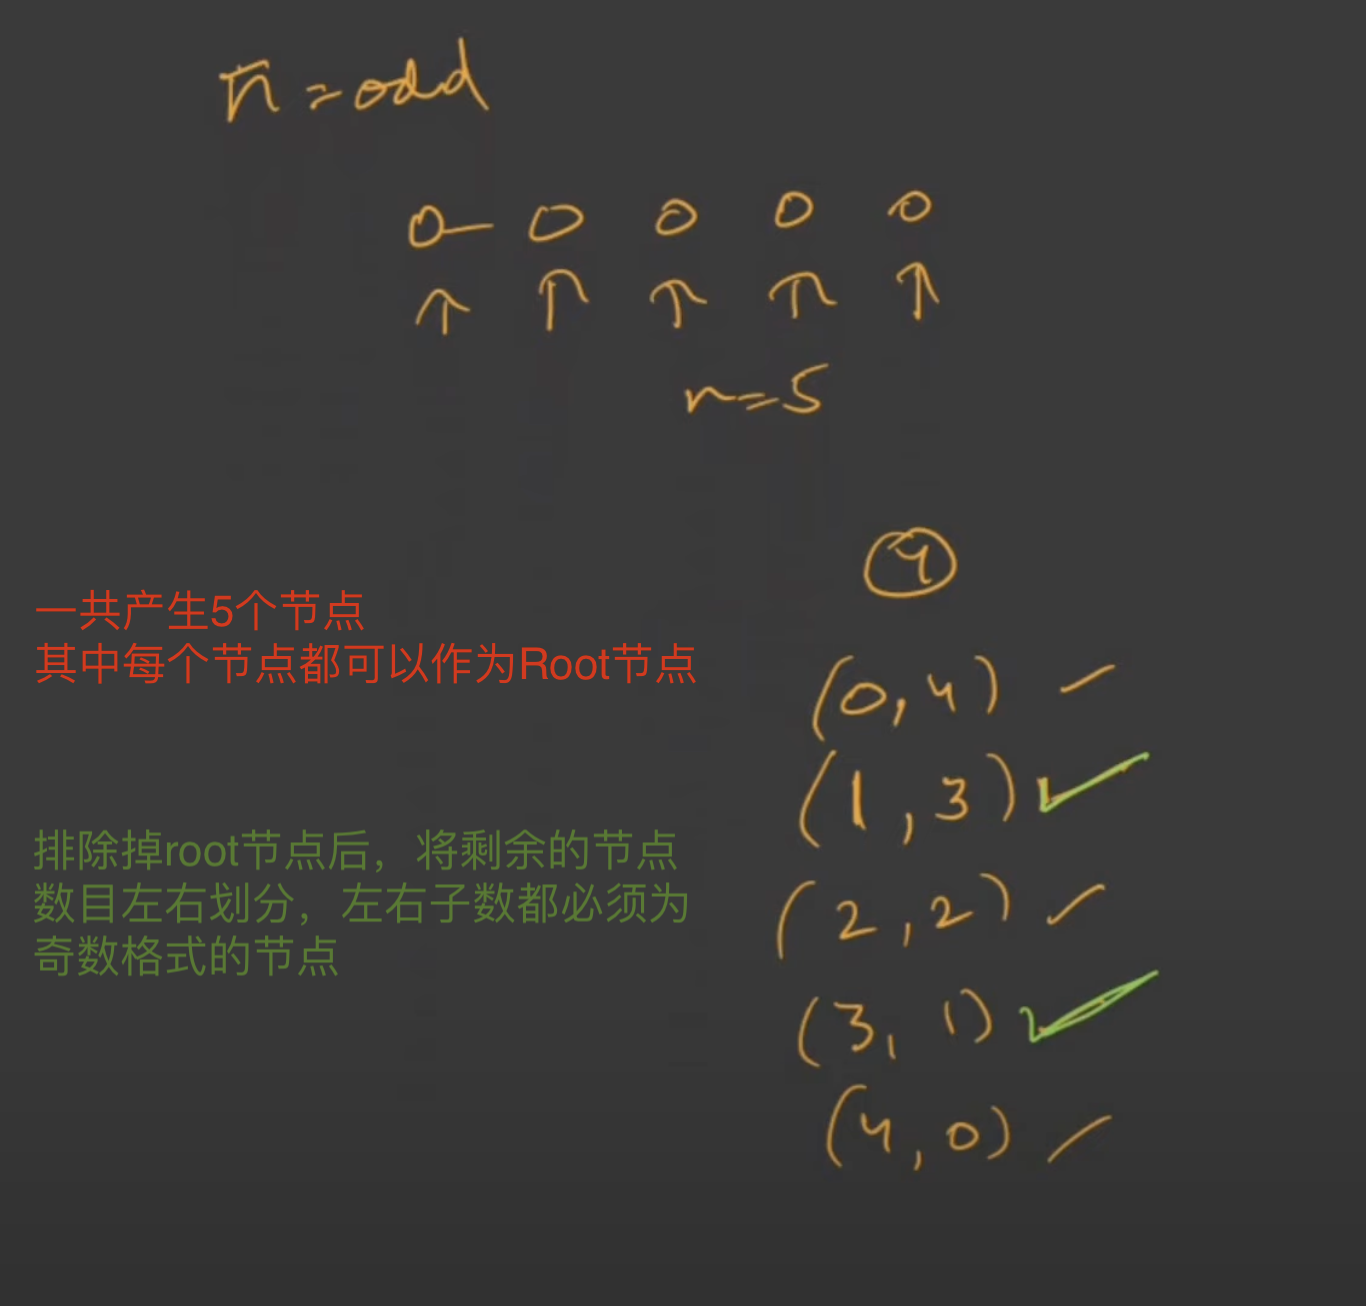 n=odd
0 0 0 0 0
n=5
4
一共产生5个节点
其中每个节点都可以作为Root节点
(0,4)
(1,3)
排除掉root节点后，将剩余的节点
数目左右划分，左右子数都必须为
奇数格式的节点
(2,2)
(3,1)
(4,0)